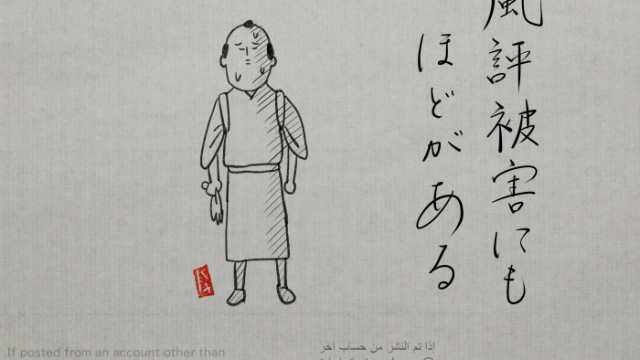 風評被害にも
ほどがある
If posted from an account other than
اذا تم النشر من حساب آخر